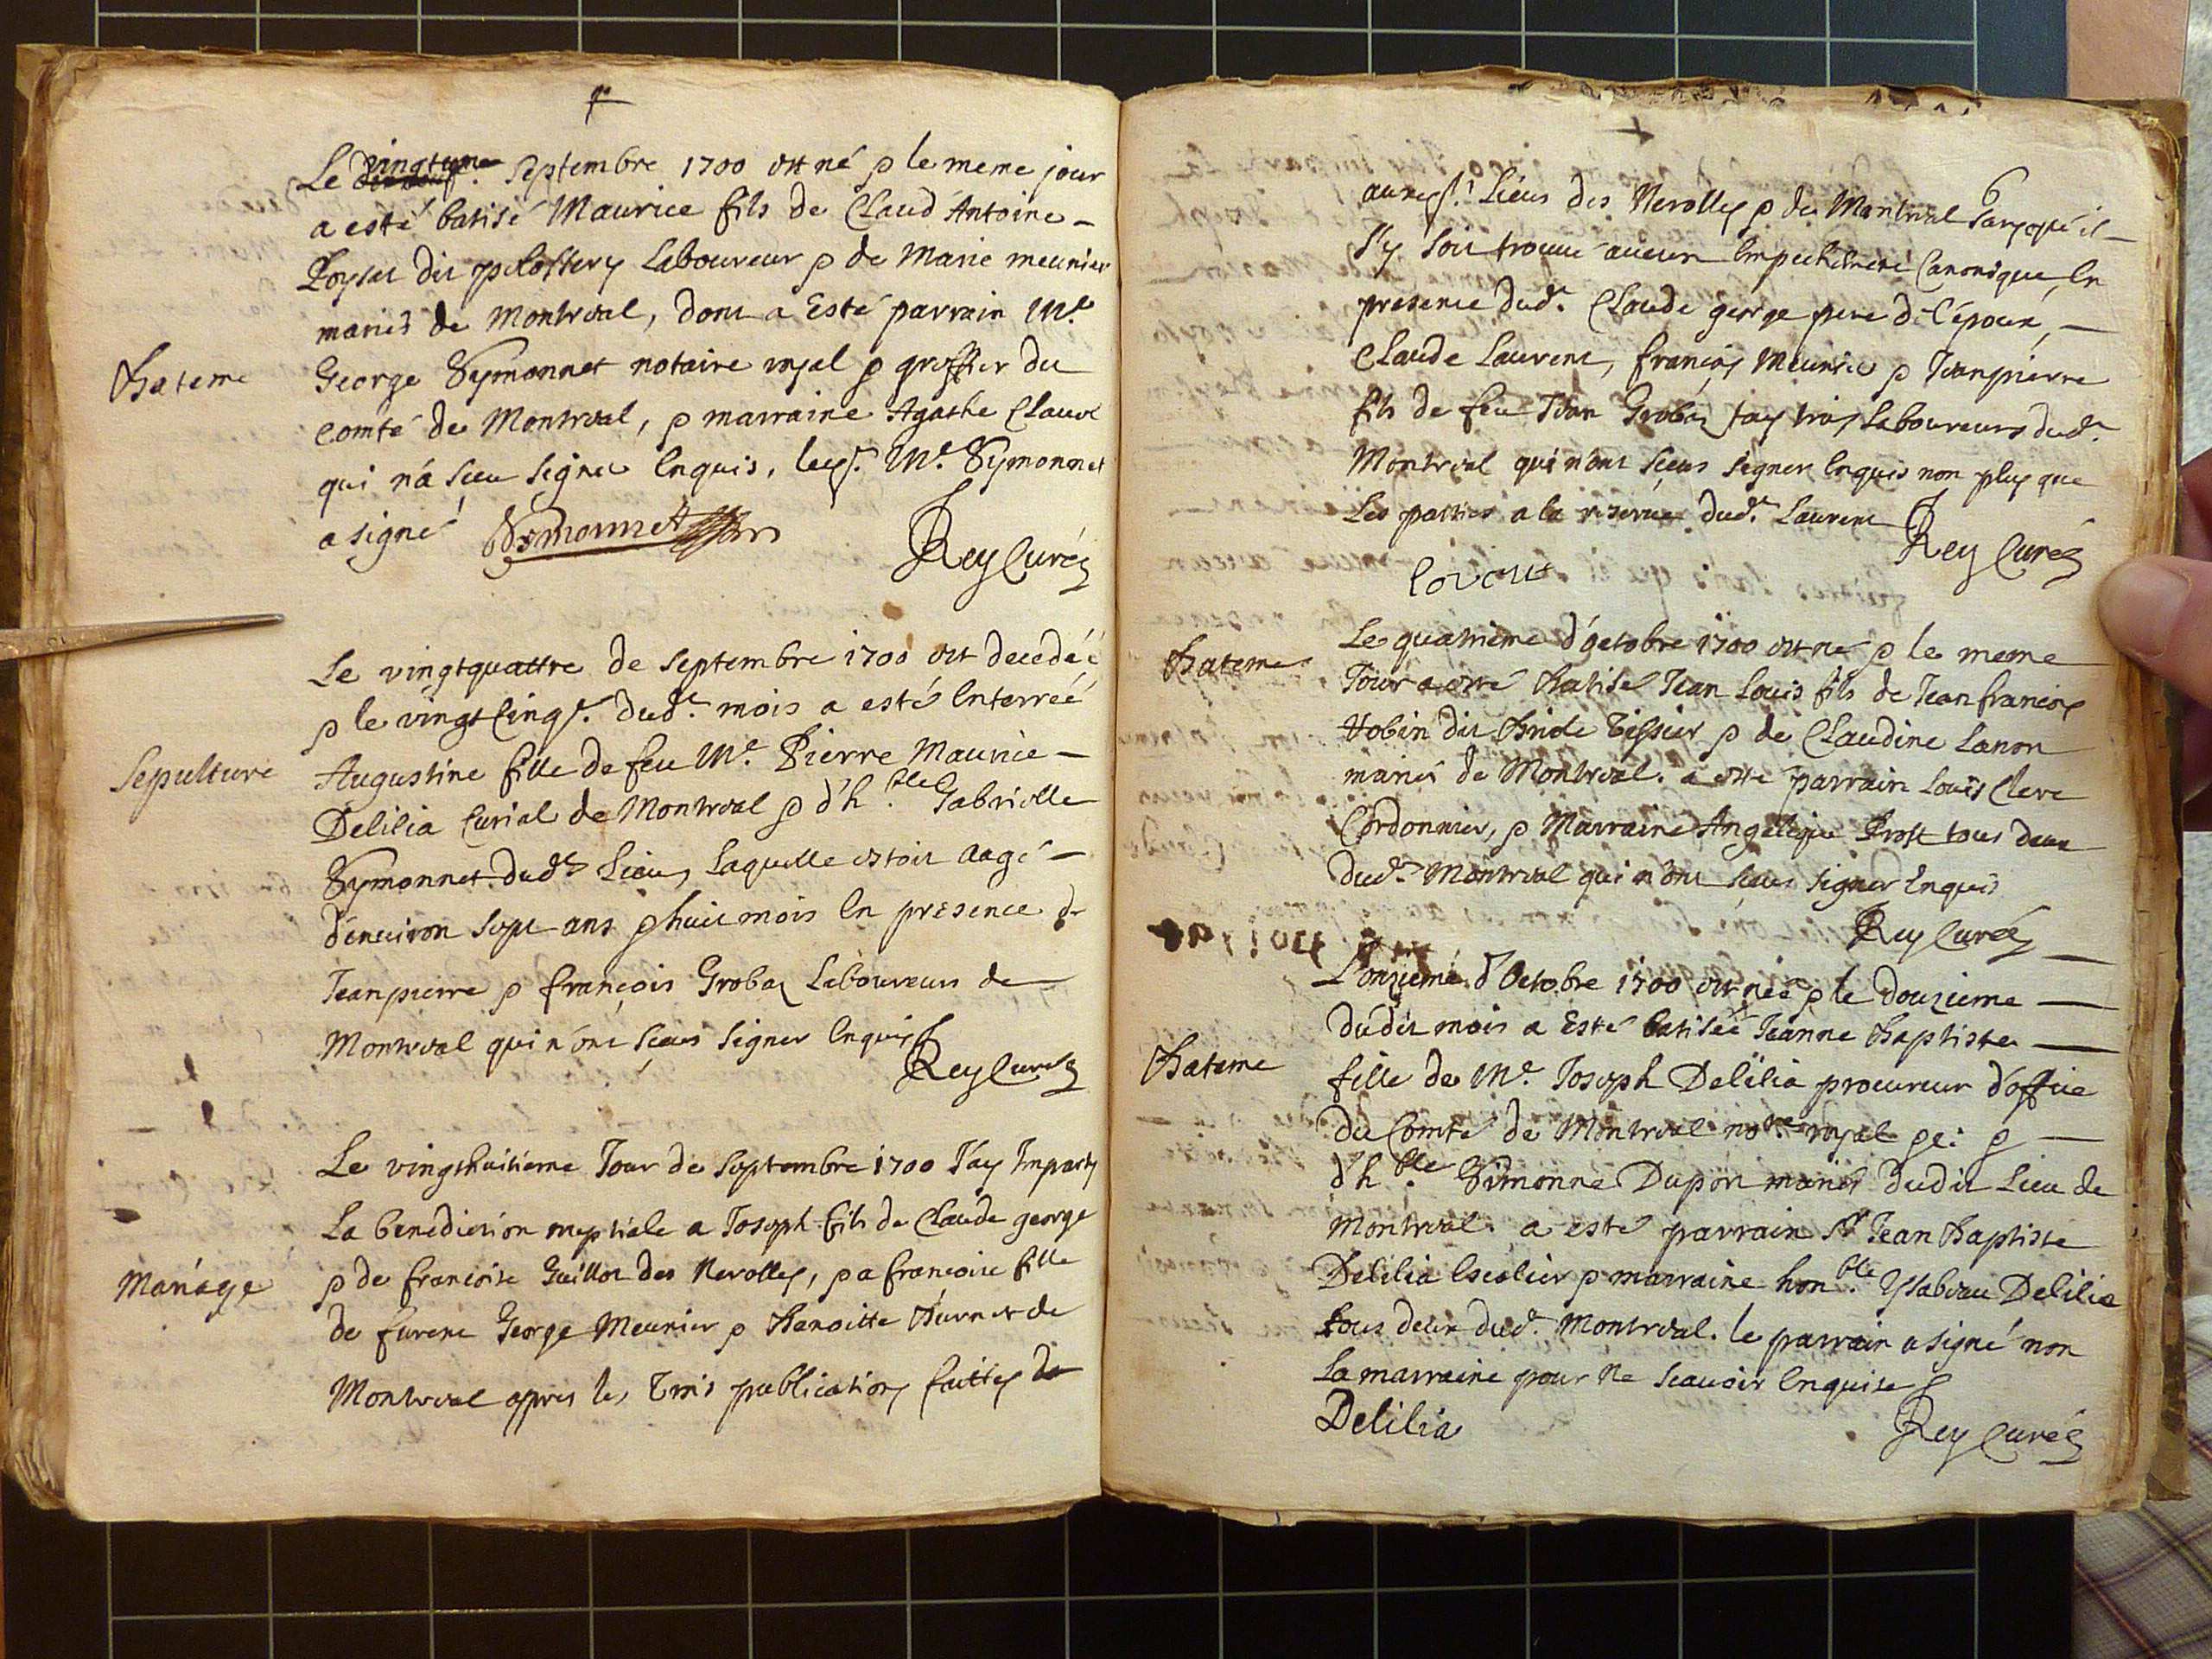 Le vingtune septembre 1700 est né & le meme jour
a esté batisé Maurice fils de Claud Antoine
dit Laboureur & de Marie meunier
mariés de Montreal, dont a Esté parrain Me
Bateme
George Symonnet notaire royal & greffier du
comté de Montreal, & marraine Agathe Claude
qui n'a sceu signer Enquis, Me Symonnet
a signé Symonnet
Rey Curé
Le vingtquattre de septembre 1700 est decedéé
& le vingt cinq dud. mois a esté Enterréé
Sepulture
Augustine fille de feu Me Pierre Maurice
Delilia Curial de Montreal & d'hble Gabrielle
Symonnet dud. Lieu, Laquelle estoit aagé
d'enuiron sept ans & huit mois En presence de
Jeanpierre & françois Grobas Laboureurs de
Montreal qui n'ont sceus signer Enquis
Rey Curé
Le vingthuitieme Jour de Septembre 1700 J'ay Imparty
La benediction nuptiale a Joseph fils de Claude george
Mariage
& de francoise Guillot des Nerolles, & a francoise fille
de furent George Meunier & Benoitte Burnet de
Montreal apres les Trois publications faittes
Lieus des Nerolles & de Montreal sans qu'il
s'y soit trouué aucun Empechement Canonique, En
presence dud. Claude george pere de l'époux,
Claude Laurent, françois Meunier & Jeanpierre
fils de feu Jean Grobas tous trois Laboureurs dud.
Montreal qui n'ont sceus signer Enquis non plus que
Les parties a la reserue dud. Laurent
Rey Curé
Le quatrieme d'octobre 1700 est né & le meme
Bateme
Jour a esté Batisé Jean Louis fils de Jean francois
Hobin dit Tissier & de Claudine Lanon
mariés de Montreal. a esté parrain Louis Clerc
Cordonnier, & Marraine Angelique Prost tous deux
dud. Montreal qui n'ont sceus signer Enquis
Rey Curé
L'onzieme d'Octobre 1700 est née & le douzieme
dudit mois a Esté batisée Jeanne Baptiste
Bateme
fille de Me Joseph Delilia procureur d'office
du Comté de Montreal nore royal
d'hble Simonne Dupon mariés dudit Lieu de
Montreal. a esté parrain Sr Jean Baptiste
Delilia Escolier & marraine honble Ysabeau Delilia
tous deux dud. Montreal. le parrain a signé non
La marraine pour ne scauoir Enquise
Delilia
Rey Curé